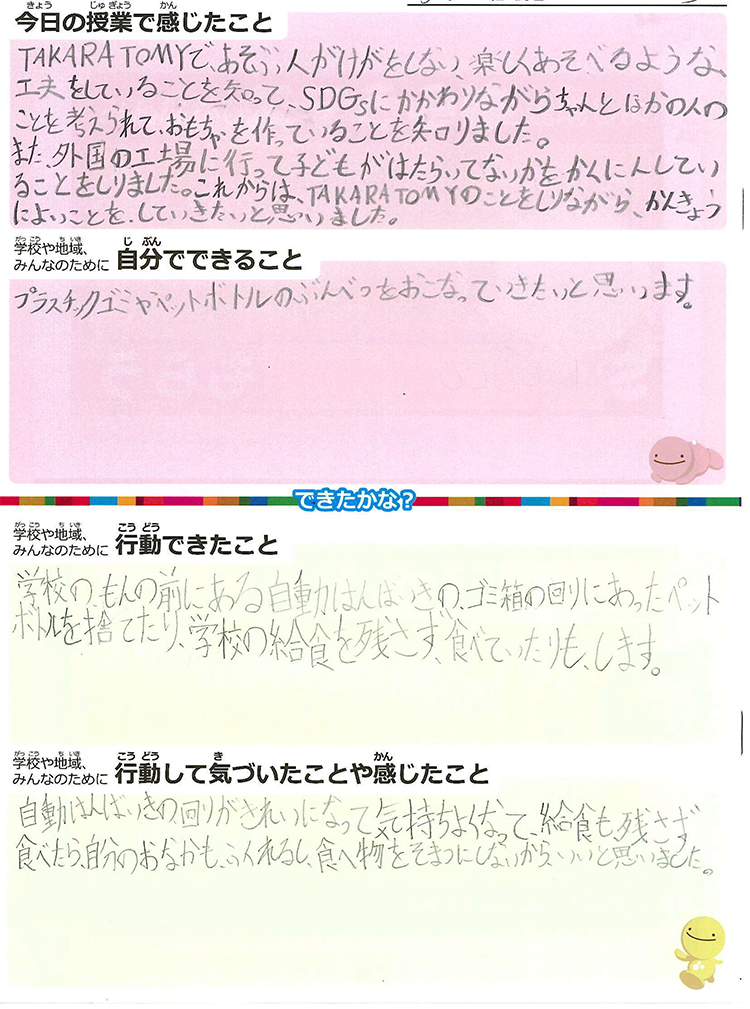 今日の授業で感じたこと
TAKARATOMYで、あそぶ人がけがをしない、楽しくあそべるような、
工夫をしていることを知って、SDGsにかかわりながらちゃんとほかの人の
ことを考えられて、おもちゃを作っていることを知りました。
また、外国の工場に行って子どもがはたらいてないかをかくにんしてい
ることをしりました。これからは、TAKARATOMYのことをしりながら、かんきょう
によいことを、していきたいと思いました。
学校や地域、
みんなのために 自分でできること
プラスチックゴミやペットボトルのぶんべつをおこなっていきたいと思います。
できたかな？
学校や地域、
みんなのために 行動できたこと
学校の、もんの前にある自動はんばいきの、ゴミ箱の回りにあったペット
ボトルを捨てたり、学校の給食を残さず、食べていたりも、します。
学校や地域、
みんなのために 行動して気づいたことや感じたこと
自動はんばいきの、回りがきれいになって気持ちよくなって、給食も、残さず
食べたら、自分のおなかも、ふくれるし、食べ物をそまつにしないから、いいと思いました。